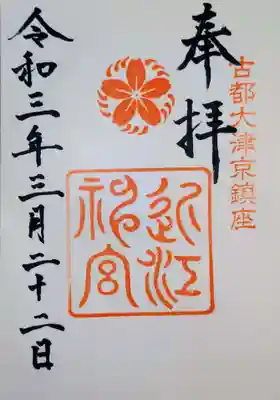 古都大津京鎮座
奉拝
近江神宮
令和三年三月二十二日